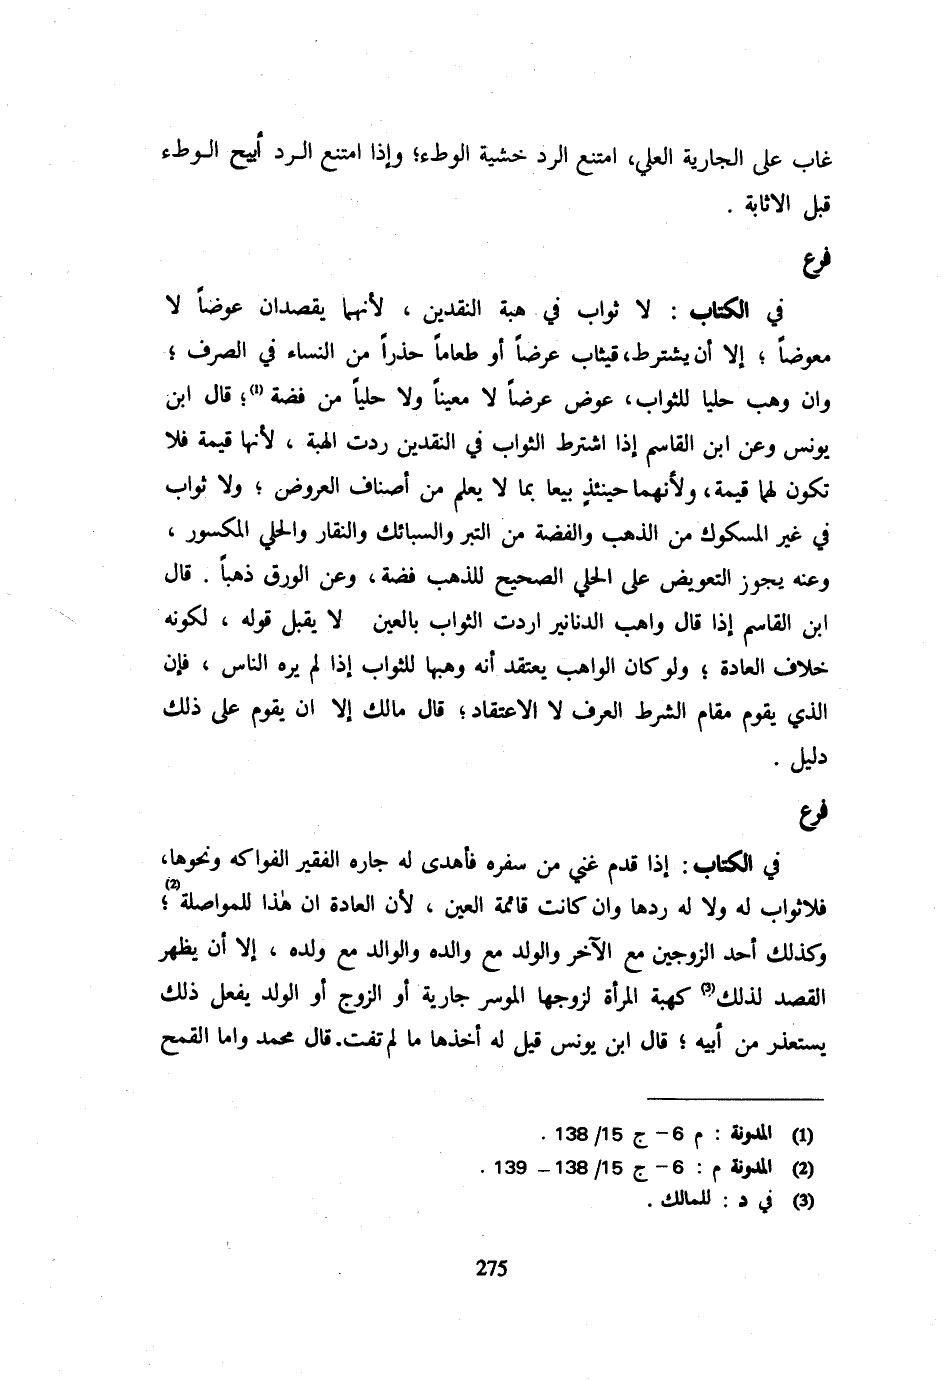 غاب على الجارية العلي، امتنع الرد خشية الوطء؛ وإذا امتنع الـرد أُبيح الـوطء
قبل الاثابة .
فرع
في الكتاب : لا ثواب في هبة النقدين ، لأنهما يقصدان عوضاً لا
معوضاً ؛ إلا أن يشترط، قيثاب عرضاً أو طعاماً حذراً من النساء في الصرف ؛
وان وهب حليا للثواب، عوض عرضاً لا معيناً ولا حلياً من فضة (1)؛ قال ابن
يونس وعن ابن القاسم إذا اشترط الثواب في النقدين ردت الهبة ، لأنها قيمة فلا
تكون لها قيمة، ولأنهما حينئذٍ بيعا بما لا يعلم من أصناف العروض ؛ ولا ثواب
في غير المسكوك من الذهب والفضة من التبر والسبائك والنقار والحلي المكسور ،
وعنه يجوز التعويض على الحلي الصحيح للذهب فضة، وعن الورق ذهباً . قال
ابن القاسم إذا قال واهب الدنانير اردت الثواب بالعين لا يقبل قوله ، لكونه
خلاف العادة ؛ ولو كان الواهب يعتقد أنه وهبها للثواب إذا لم يره الناس ، فإن
الذي يقوم مقام الشرط العرف لا الاعتقاد؛ قال مالك إلا ان يقوم على ذلك
دليل .
فرع
في الكتاب : إذا قدم غني من سفره فأهدى له جاره الفقير الفواكه ونحوها،
فلاثواب له ولا له ردها وان كانت قائمة العين ، لأن العادة ان هٰذا للمواصلة(2)؛
وكذلك أحد الزوجين مع الآخر والولد مع والده والوالد مع ولده ، إلا أن يظهر
القصد لذلك(3) كهبة المرأة لزوجها الموسر جارية أو الزوج أو الولد يفعل ذلك
يستعذر من أبيه ؛ قال ابن يونس قيل له أخذها ما لم تفت. قال محمد واما القمح
(1) المدونة : م 6 – ج 15/ 138 .
(2) المدونة م : 6 – ج 15/ 138 – 139 .
(3) في د : للمالك .
275